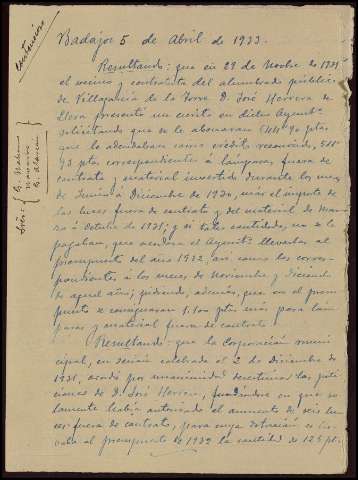 Badajoz 5 de Abril de 1933.
Resultando: que en 29 de Novbre de 1931
el vecino y contratista del alumbrado público
de Villagarcía de la Torre D. José Herrera de
Llera presentó un escrito en dicho Ayuntº
solicitando que se le abonaran ptas
que le adeudaban como crédito reconocido,
ptas correspondientes á lámparas fuera de
contrato y material invertido durante los meses
de á Diciembre de 1930, más el importe de
las luces fuera de contrato y del material de
á Octubre de 1931; y si tales cantidades no se le
pagaban, que acordara el Ayuntº llevarlas al
presupuesto del año 1932, así como las corres-
pondientes á los meses de Noviembre y Diciembre
de aquel año; pidiendo, además, que en el presu-
puesto se consignaran 1.100 ptas más para lám-
paras y material fuera de contrato.
Resultando: que la Corporación muni-
cipal, en sesión celebrada el 2 de diciembre de
1931, acordó por unanimidad desestimar las peti-
ciones de D. José Herrera, fundándose en que so-
lamente había autorizado el aumento de seis lu-
ces fuera de contrato, para cuya
al presupuesto de 1932 la cantidad de 125 pts.
Sres.
Navarro